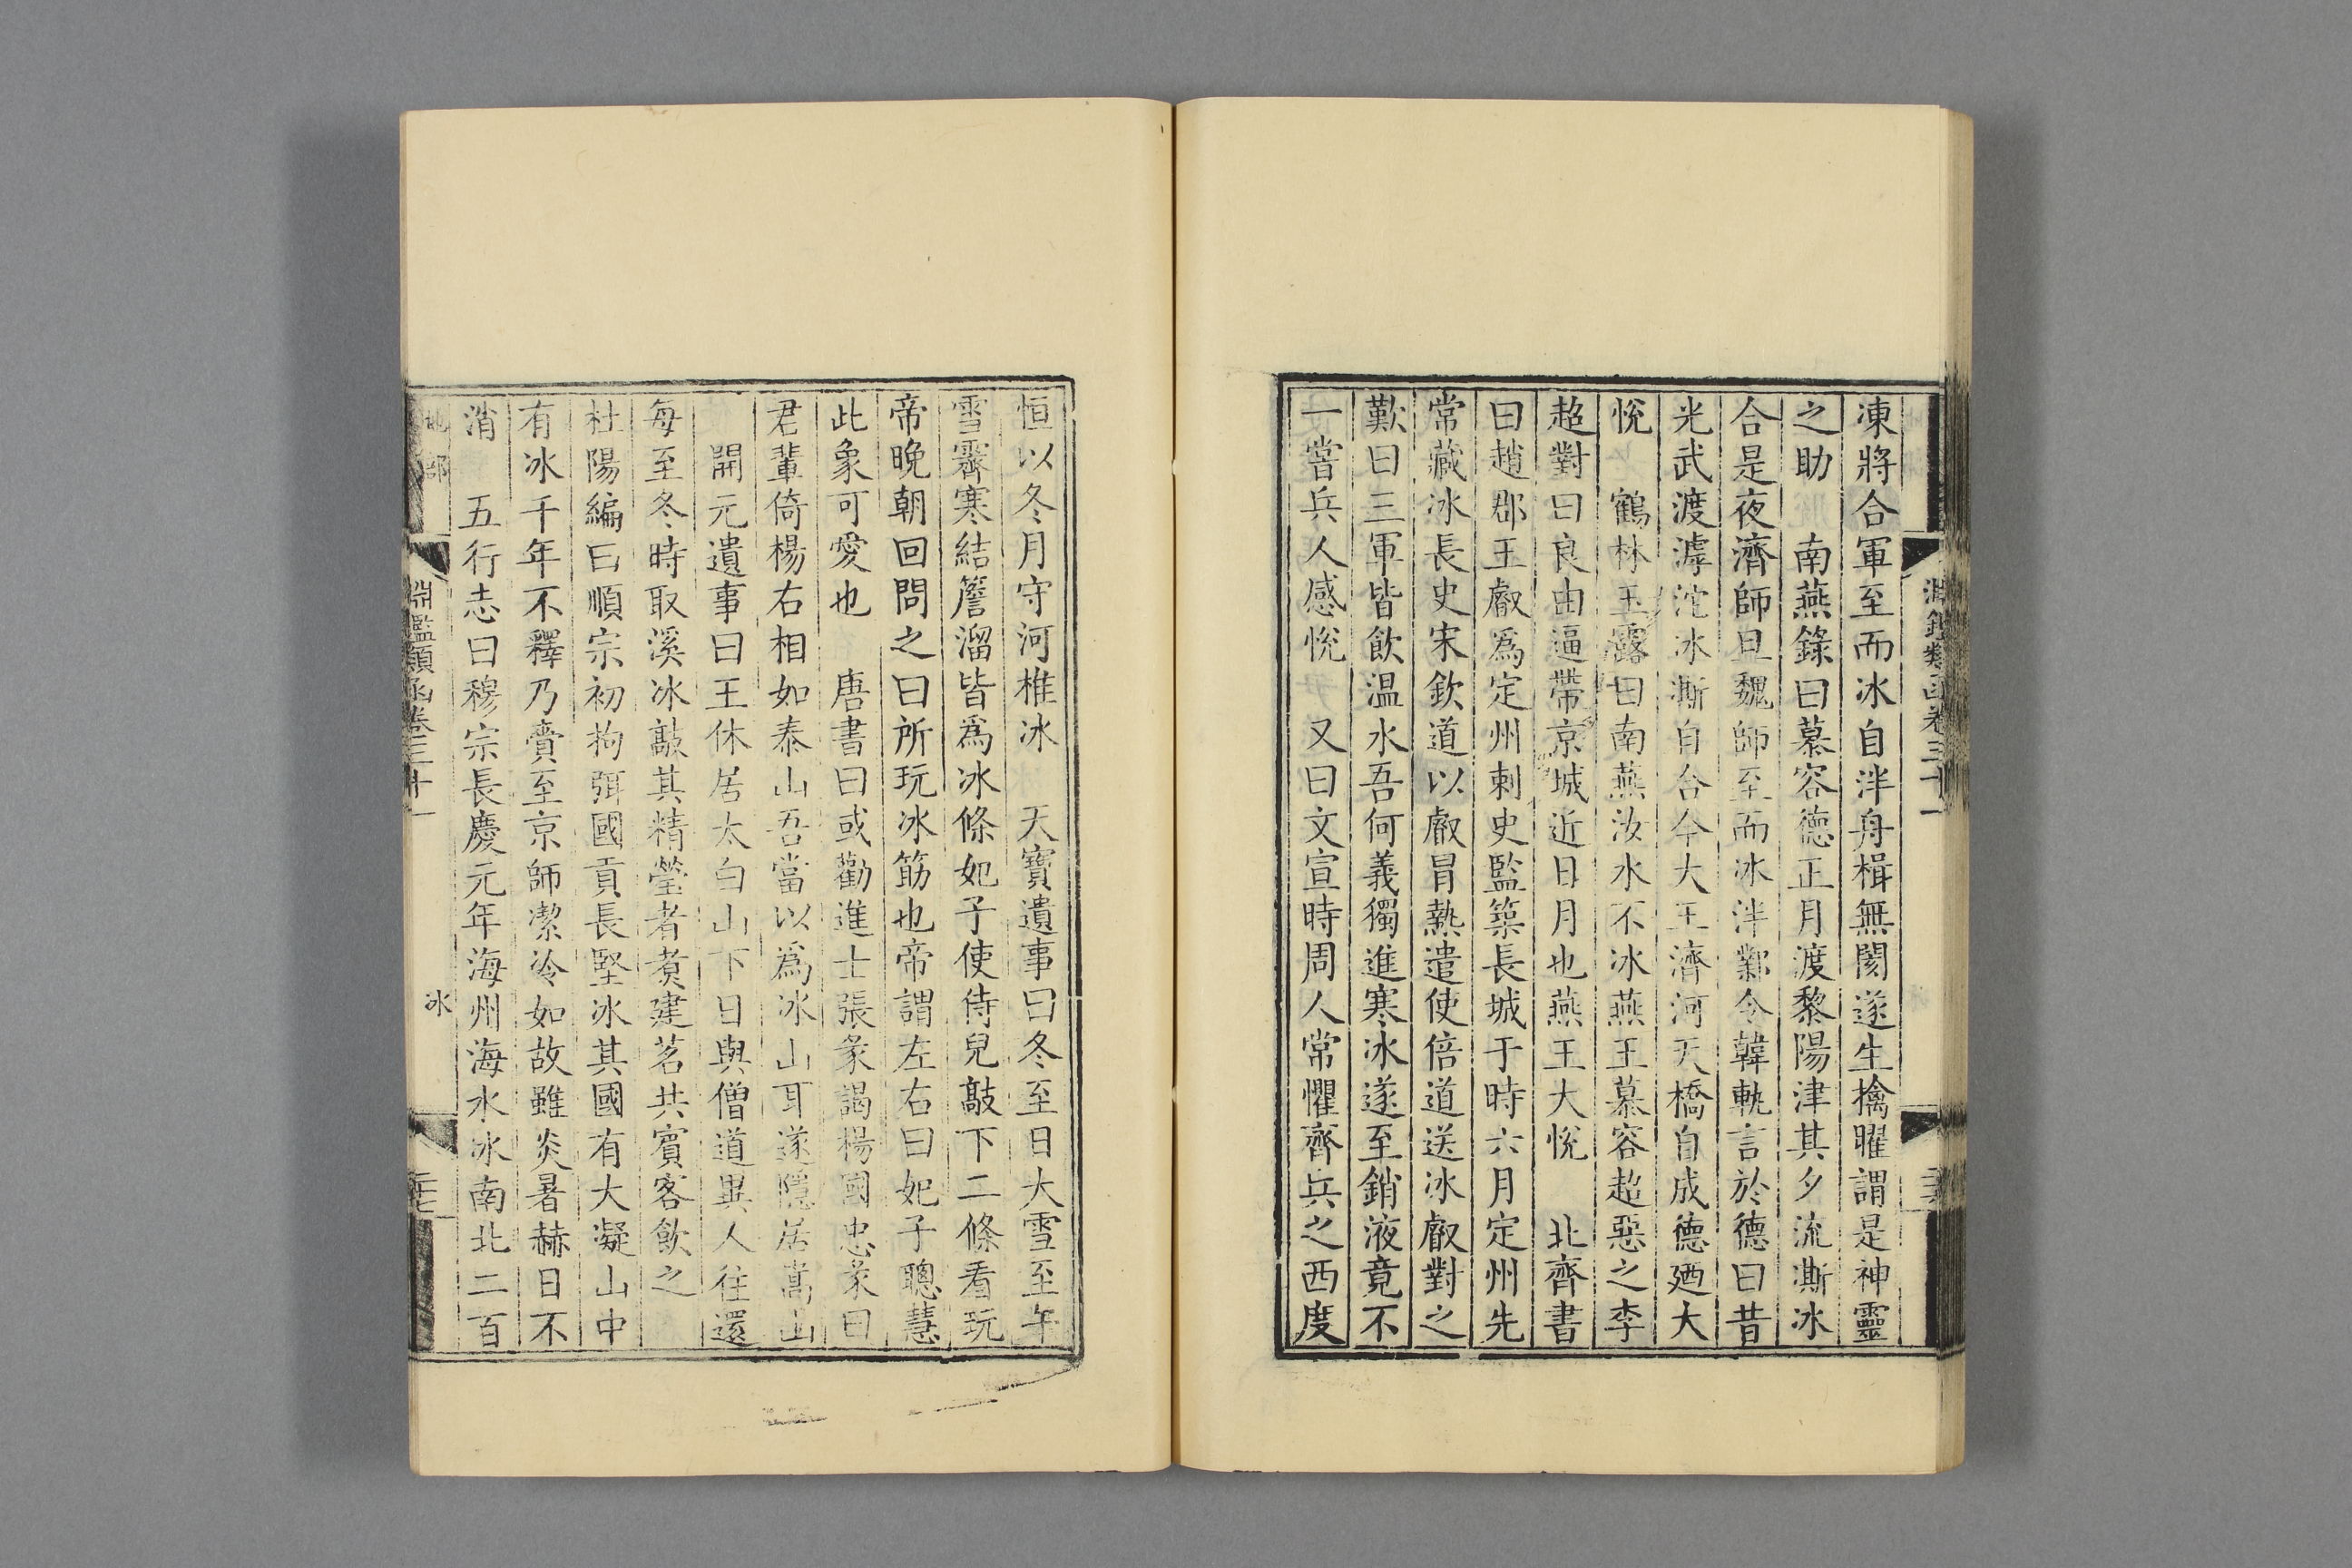 淵鑑類函卷三十一
凍將合軍至而冰自泮舟楫無閡遂生擒曜謂是神靈
之助　南燕錄曰慕容德正月渡黎陽津其夕流澌冰
合是夜濟師旦魏師至而冰泮鄴令韓軌言於德曰昔
光武渡滹沱冰澌自合今大王濟河天橋自成德廼大
悅　鶴林玉露曰南燕汝水不冰燕王慕容超惡之李
超對曰良由逼帶京城近日月也燕王大悅　北齊書
曰趙郡王叡爲定州刺史監築長城于時六月定州先
常藏冰長史宋欽道以叡冒熱遣使倍道送冰叡對之
歎曰三軍皆飲温水吾何義獨進寒冰遂至銷液竟不
一嘗兵人感悅　又曰文宣時周人常懼齊兵之西度
恒以冬月守河椎冰　天寶遺事曰冬至日大雪至午
雪霽寒結簷溜皆爲冰條妃子使侍兒敲下二條看玩
帝晚朝回問之曰所玩冰筯也帝謂左右曰妃子聰慧
此象可愛也　唐書曰或勸進士張彖謁楊國忠彖曰
君輩倚楊右相如泰山吾當以爲冰山耳遂隱居嵩山
　開元遺事曰王休居太白山下日與僧道異人往還
每至冬時取溪冰敲其精瑩者煑建茗共賓客飲之
杜陽編曰順宗初拘弭國貢長堅冰其國有大凝山中
有冰千年不釋乃賫至京師潔冷如故雖炎暑赫日不
消　五行志曰穆宗長慶元年海州海水冰南北二百
地部
淵鑑類函卷三十一
冰